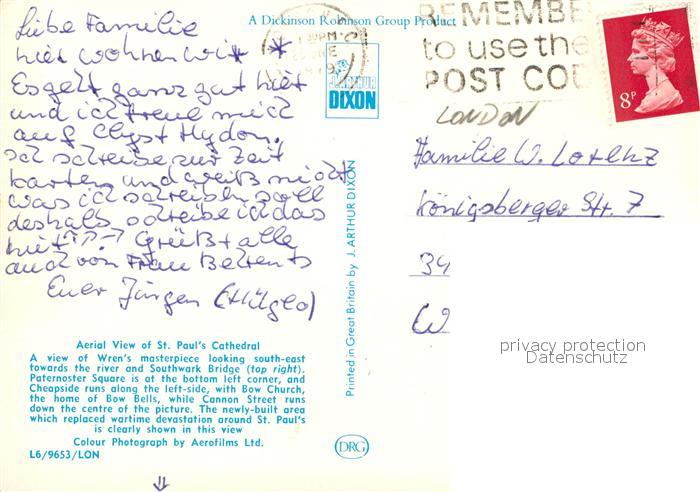 A Dickinson Robinson Group Product
Liebe Familie
hier wohnen wir *
Es geht ganz gut hier
und ich freue mich
auf Clyst Hydon.
Ich schreibe zur Zeit
karten und weiß nicht
was ich schreiben soll
deshalb schreibe ich das
hier??? Grüßt alle
auch von Frau Behrents
Euer Jürgen
Aerial View of St. Paul's Cathedral
A view of Wren's masterpiece looking south-east
towards the river and Southwark Bridge (top right).
Paternoster Square is at the bottom left corner, and
Cheapside runs along the left-side, with Bow Church,
the home of Bow Bells, while Cannon Street runs
down the centre of the picture. The newly-built area
which replaced wartime devastation around St. Paul's
is clearly shown in this view
Colour Photograph by Aerofilms Ltd.
L6/9653/LON
J. ARTHUR
DIXON
Printed in Great Britain by J. ARTHUR DIXON
DRG
REMEMBE
to use the
POST COD
8P
LONDON
Familie W. Lorenz
Königsberger Str. 7
34
W
privacy protection
Datenschutz